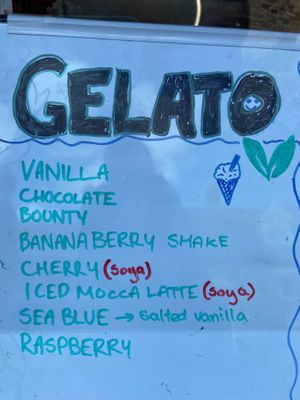 GELATO
VANILLA
CHOCOLATE
BOUNTY
BANANA BERRY SHAKE
CHERRY (soya)
ICED MOCCA LATTE (soya)
SEA BLUE → salted vanilla
RASPBERRY